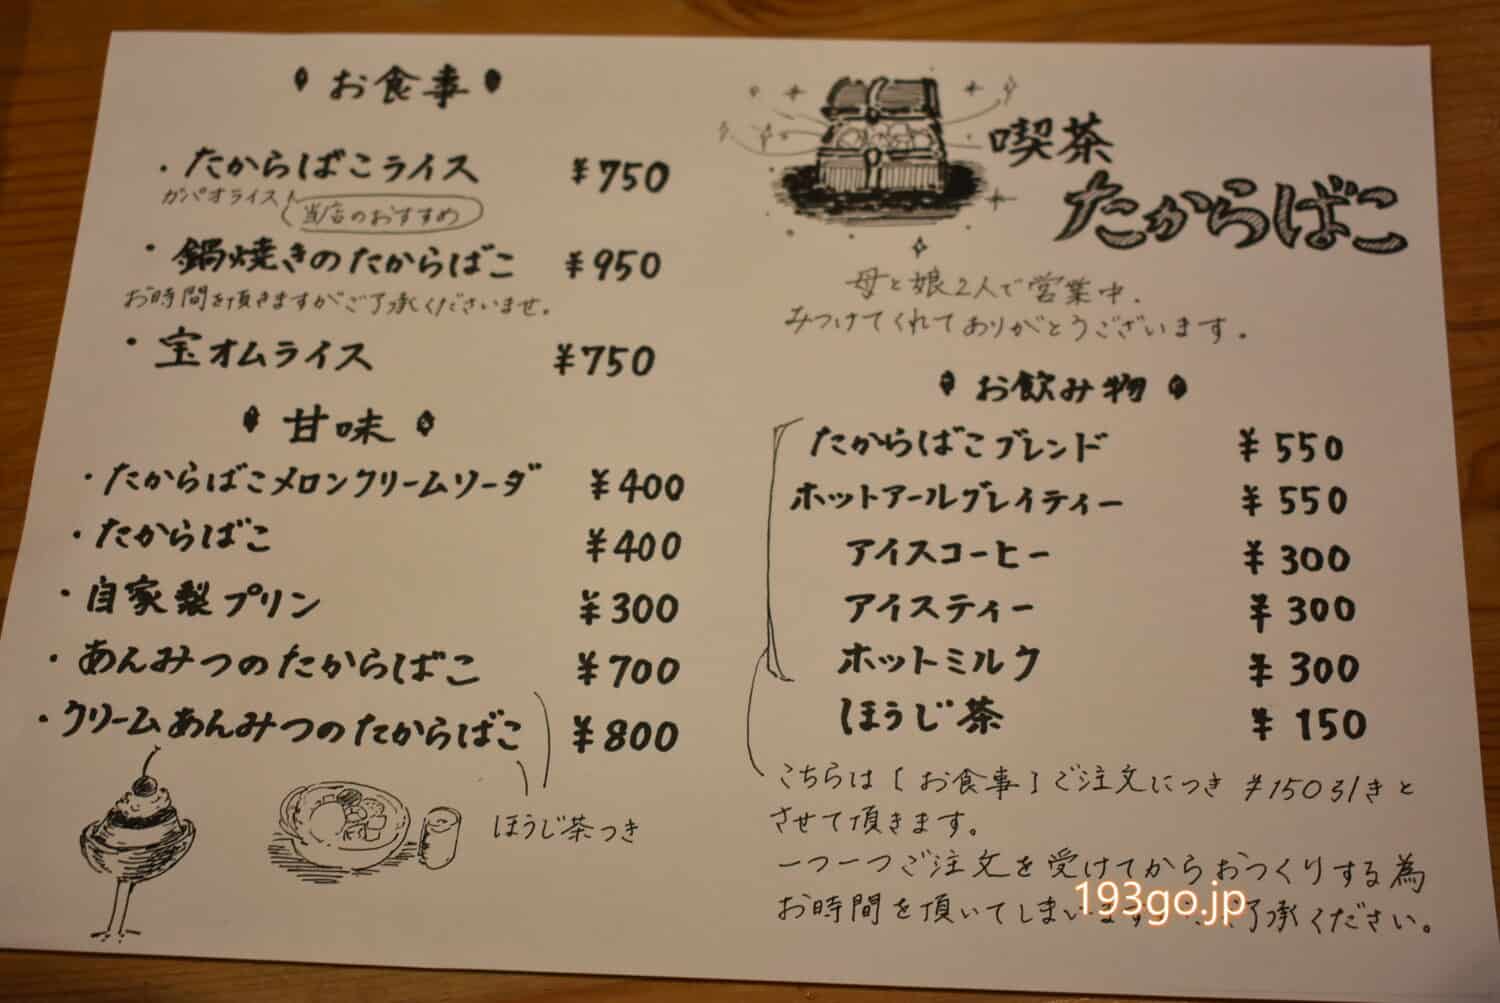 お食事
・たからばこライス ¥750
ガパオライス 当店のおすすめ
・鍋焼きのたからばこ ¥950
お時間を頂きますがご了承くださいませ。
・宝オムライス ¥750
甘味
・たからばこメロンクリームソーダ ¥400
・たからばこ ¥400
・自家製プリン ¥300
・あんみつのたからばこ ¥700
・クリームあんみつのたからばこ ¥800
ほうじ茶つき
喫茶
たからばこ
母と娘2人で営業中.
みつけてくれてありがとうございます.
お飲み物
たからばこブレンド ¥550
ホットアールグレイティー ¥550
アイスコーヒー ¥300
アイスティー ¥300
ホットミルク ¥300
ほうじ茶 ¥150
こちらは[お食事]ご注文につき ¥150引きと
させて頂きます。
一つ一つご注文を受けてからおつくりする為
お時間を頂いてしまいます 了承ください。
193go.jp